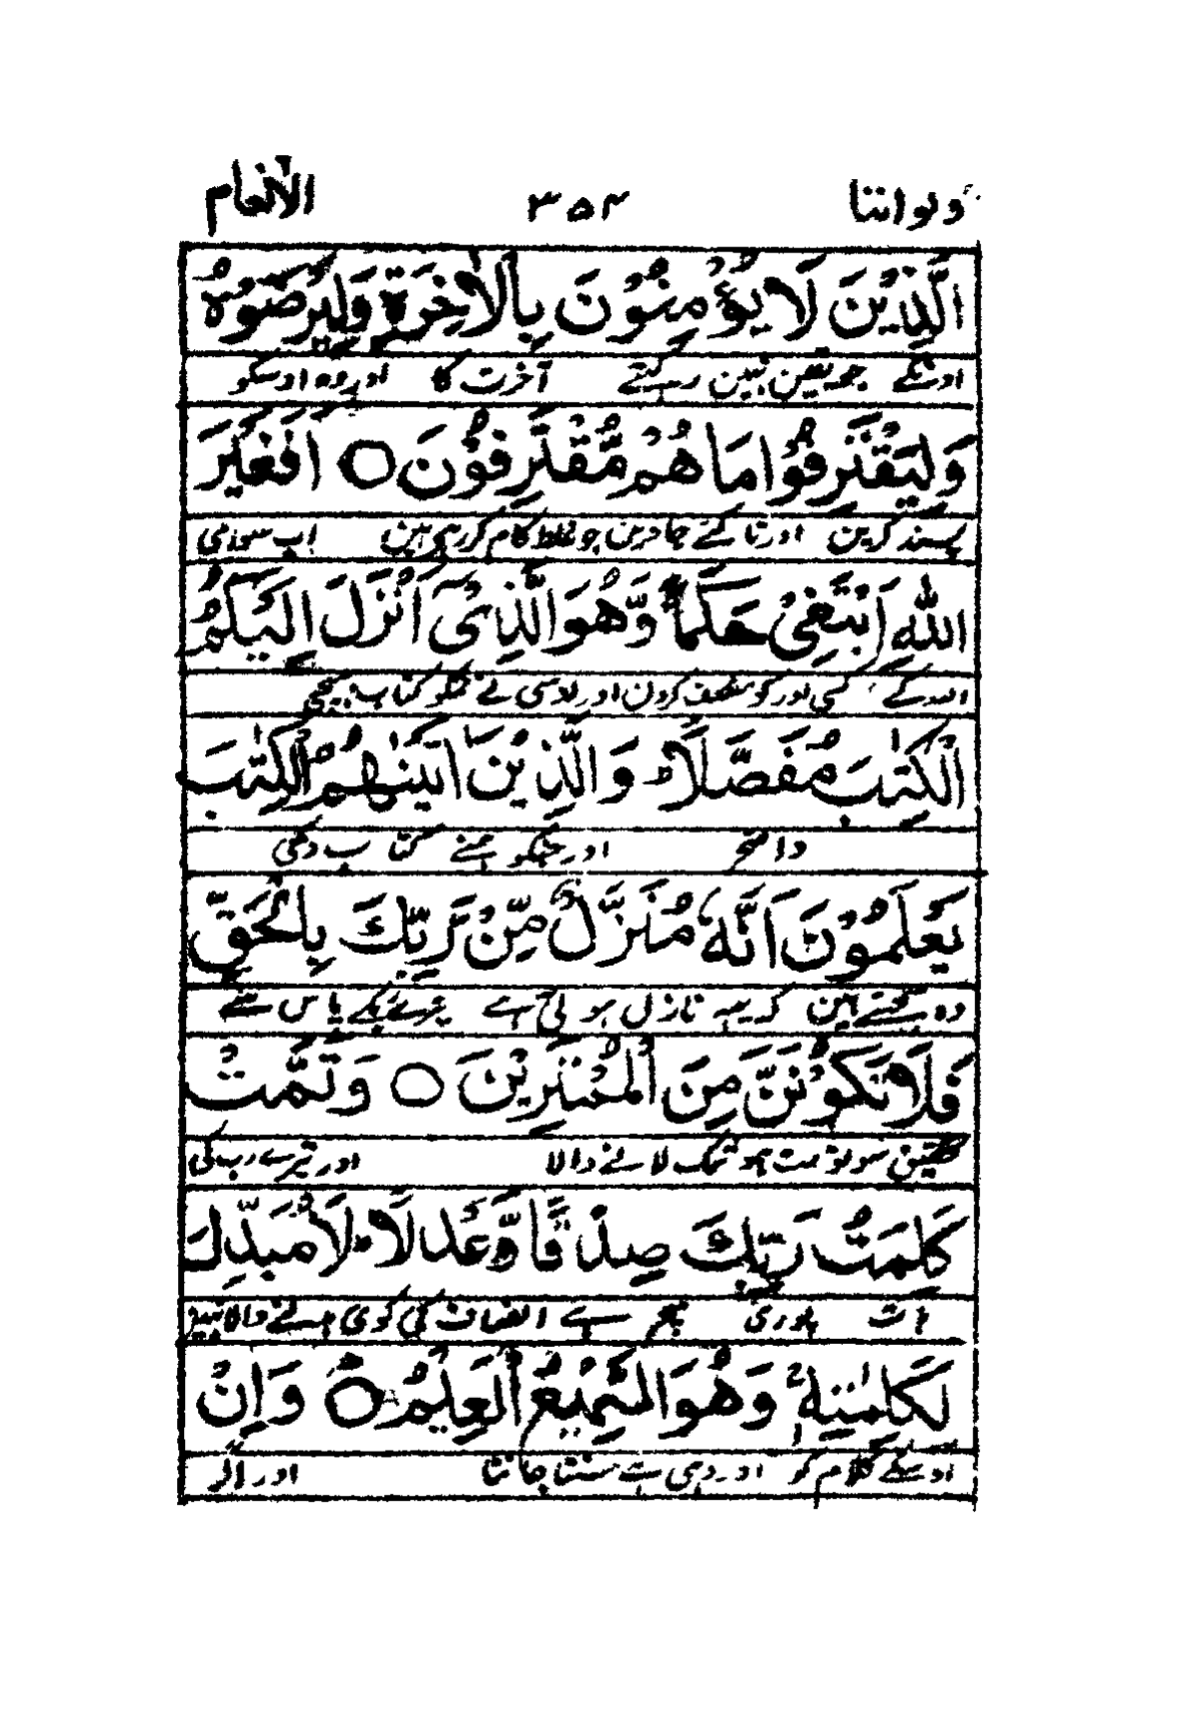 ولواننا ٣٥٤ الانعام
الَّذِيْنَ لَا يُؤْمِنُوْنَ بِالْاٰخِرَةِ وَلِيَرْضَوْهُ
جو یقین نہیں رکہتے آخرت کا اور وہ اوسکو
وَلِيَقْتَرِفُوْا مَا هُمْ مُّقْتَرِفُوْنَ ○ اَفَغَيْرَ
پسند کرین اور تا کئے جاوین جو غلط کام کر رہی ہین اب سوای
اللّٰهِ اَبْتَغِيْ حَكَمًا وَّهُوَ الَّذِيْٓ اَنْزَلَ اِلَيْكُمُ
اللہ کے کسی اور کو منصف کرون اور اوسی نے تمکو کتاب بہیجی
الْكِتٰبَ مُفَصَّلًا ط وَالَّذِيْنَ اٰتَيْنٰهُمُ الْكِتٰبَ
واضح اور جنکو ہمنے کتاب دی
يَعْلَمُوْنَ اَنَّهٗ مُنَزَّلٌ مِّنْ رَّبِّكَ بِالْحَقِّ
وہ سمجہتے ہین کہ یہہ نازل ہوئی ہے تیرے رب کے پاس سے
فَلَا تَكُوْنَنَّ مِنَ الْمُمْتَرِيْنَ ○ وَتَمَّتْ
سو تو مت ہو شک لانے والا اور تیرے رب کی
كَلِمَتُ رَبِّكَ صِدْقًا وَّعَدْلًا ط لَا مُبَدِّلَ
بات پوری سچ ہے انصاف کی کوئی بدلنے والا نہین
لِكَلِمٰتِهٖ ج وَهُوَ السَّمِيْعُ الْعَلِيْمُ ○ وَاِنْ
اوسکے کلام کو اور وہی ہے سنتا جانتا اور اگر